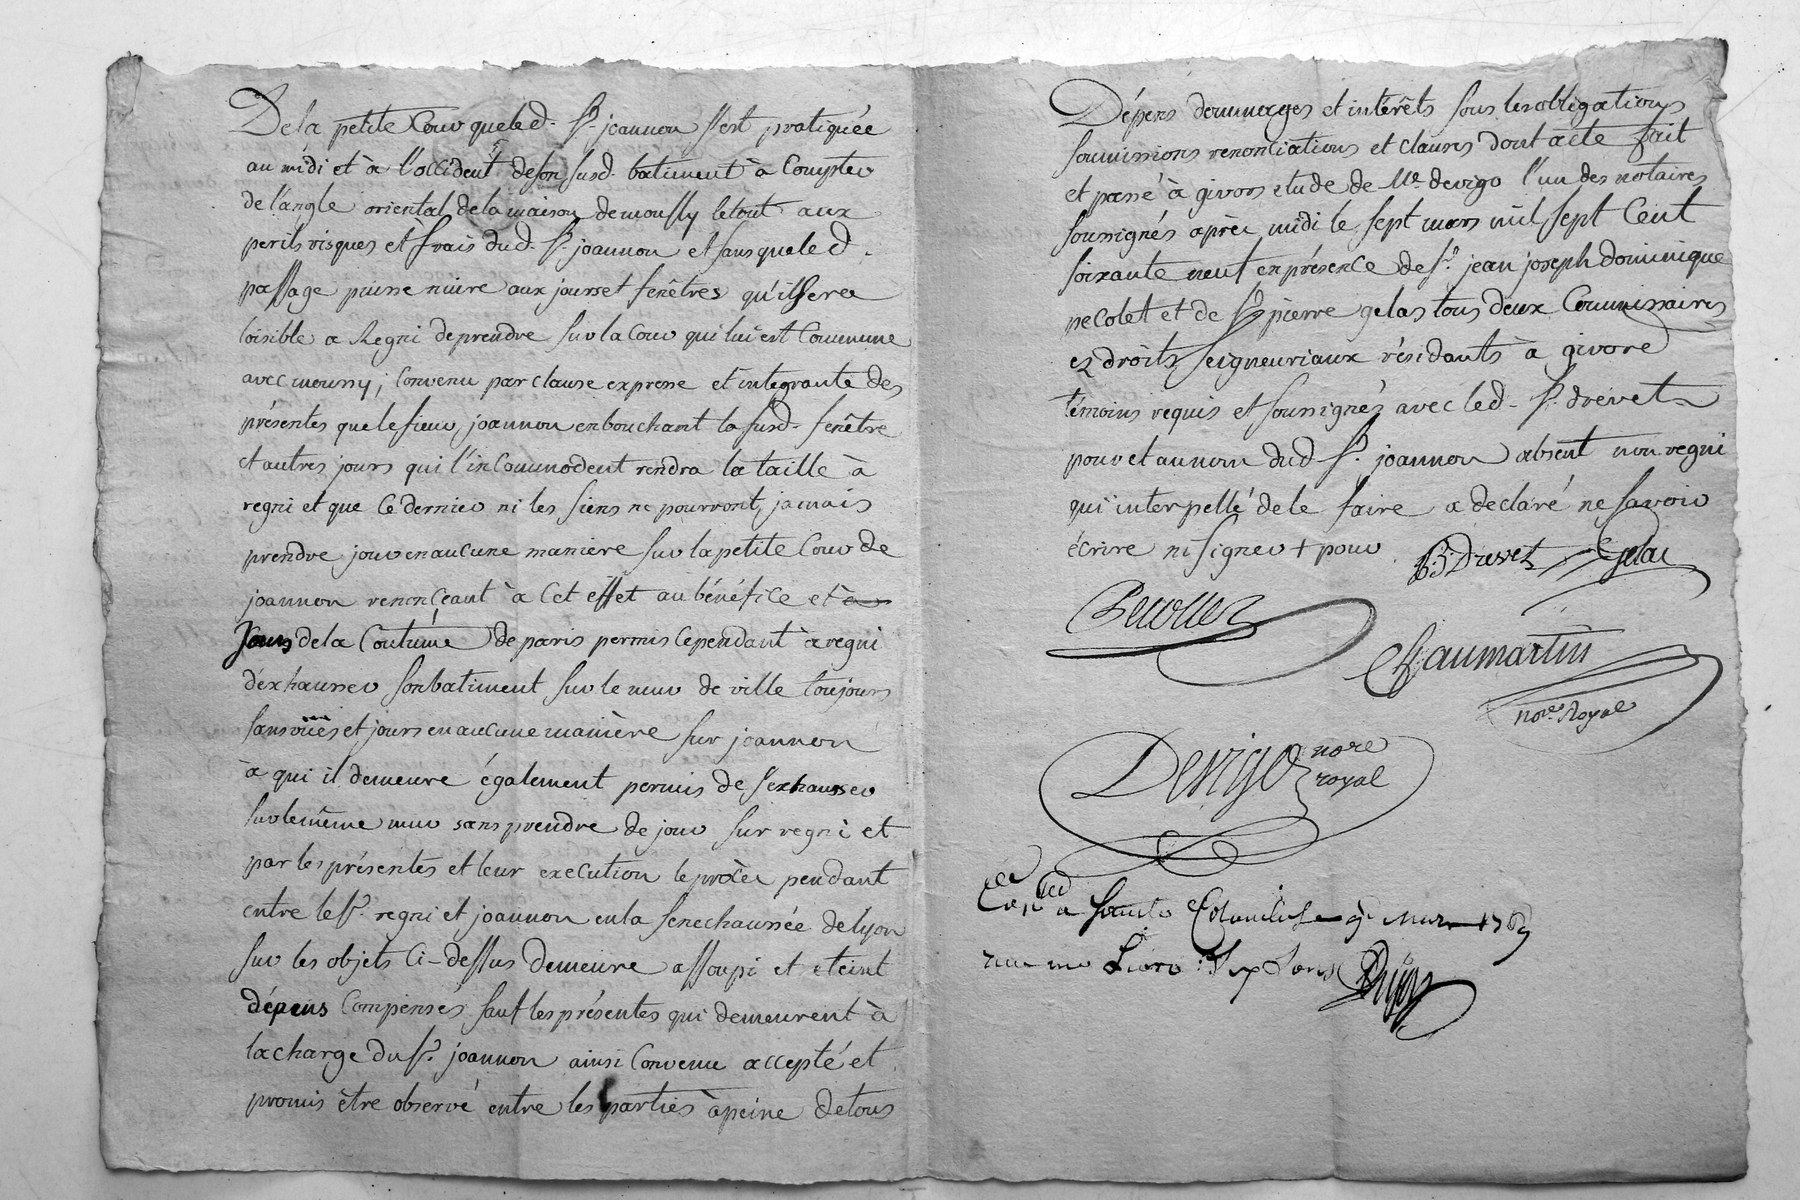 De la petite Cour que led. Sr. joannon s'est pratiquée
au midi et à l'occident de son susd. batiment à Compter
de l'angle oriental de la maison de moussy le tout aux
perils risques et frais dud. Sr. joannon et sans que led.
passage puisse nuire aux jours et fenêtres qu'il sera
loisible a Regni de prendre sur la Cour qui lui est Commune
avec moussy; Convenu par clause expresse et integrante des
présentes que le sieur joannon en bouchant la susd. fenêtre
et autres jours qui l'inCommodent rendra la taille à
regni et que Ce dernier ni les siens ne pourront jamais
prendre jour en aucune manière sur la petite Cour de
joannon renonçant à Cet effet au bénéfice et à
Jours de la Coutume de paris permis Cependant à regni
d'exhausser son batiment sur le mur de ville toujours
sans vües et jours en aucune manière sur joannon
à qui il demeure également permis de s'exhausser
sur le même mur sans prendre de jour sur regni et
par les présentes et leur execution le procès pendant
entre le Sr. regni et joannon en la senechaussée de lyon
sur les objets Ci-dessus demeure assoupi et eteint
dépens Compensés sauf les présentes qui demeurent à
la charge du Sr. joannon ainsi Convenu accepté et
promis être observé entre les parties à peine de tous
Dépens dommages et intérêts sous les obligations
soumissions renonciations et clauses dont acte fait
et passé à givors etude de Me. devigo l'un des notaires
soussignés après midi le sept mars mil sept Cent
soixante neuf en présence de Sr. jean joseph dominique
pecolet et de Sr. pierre gelas tous deux Commissaires
ez droits seigneuriaux résidants à givors
témoins requis et soussignés avec led. Sr. drevet
pour et au nom dud Sr. joannon absent non regni
qui interpellé de le faire a declaré ne savoir
écrire ni signer + pour B. Drevet Gelas
Pecollet
Chaumartin
nore. Royal
Devigo nore
royal
Con.lé a Sainte Colombe le 9 mars 1769
six sous